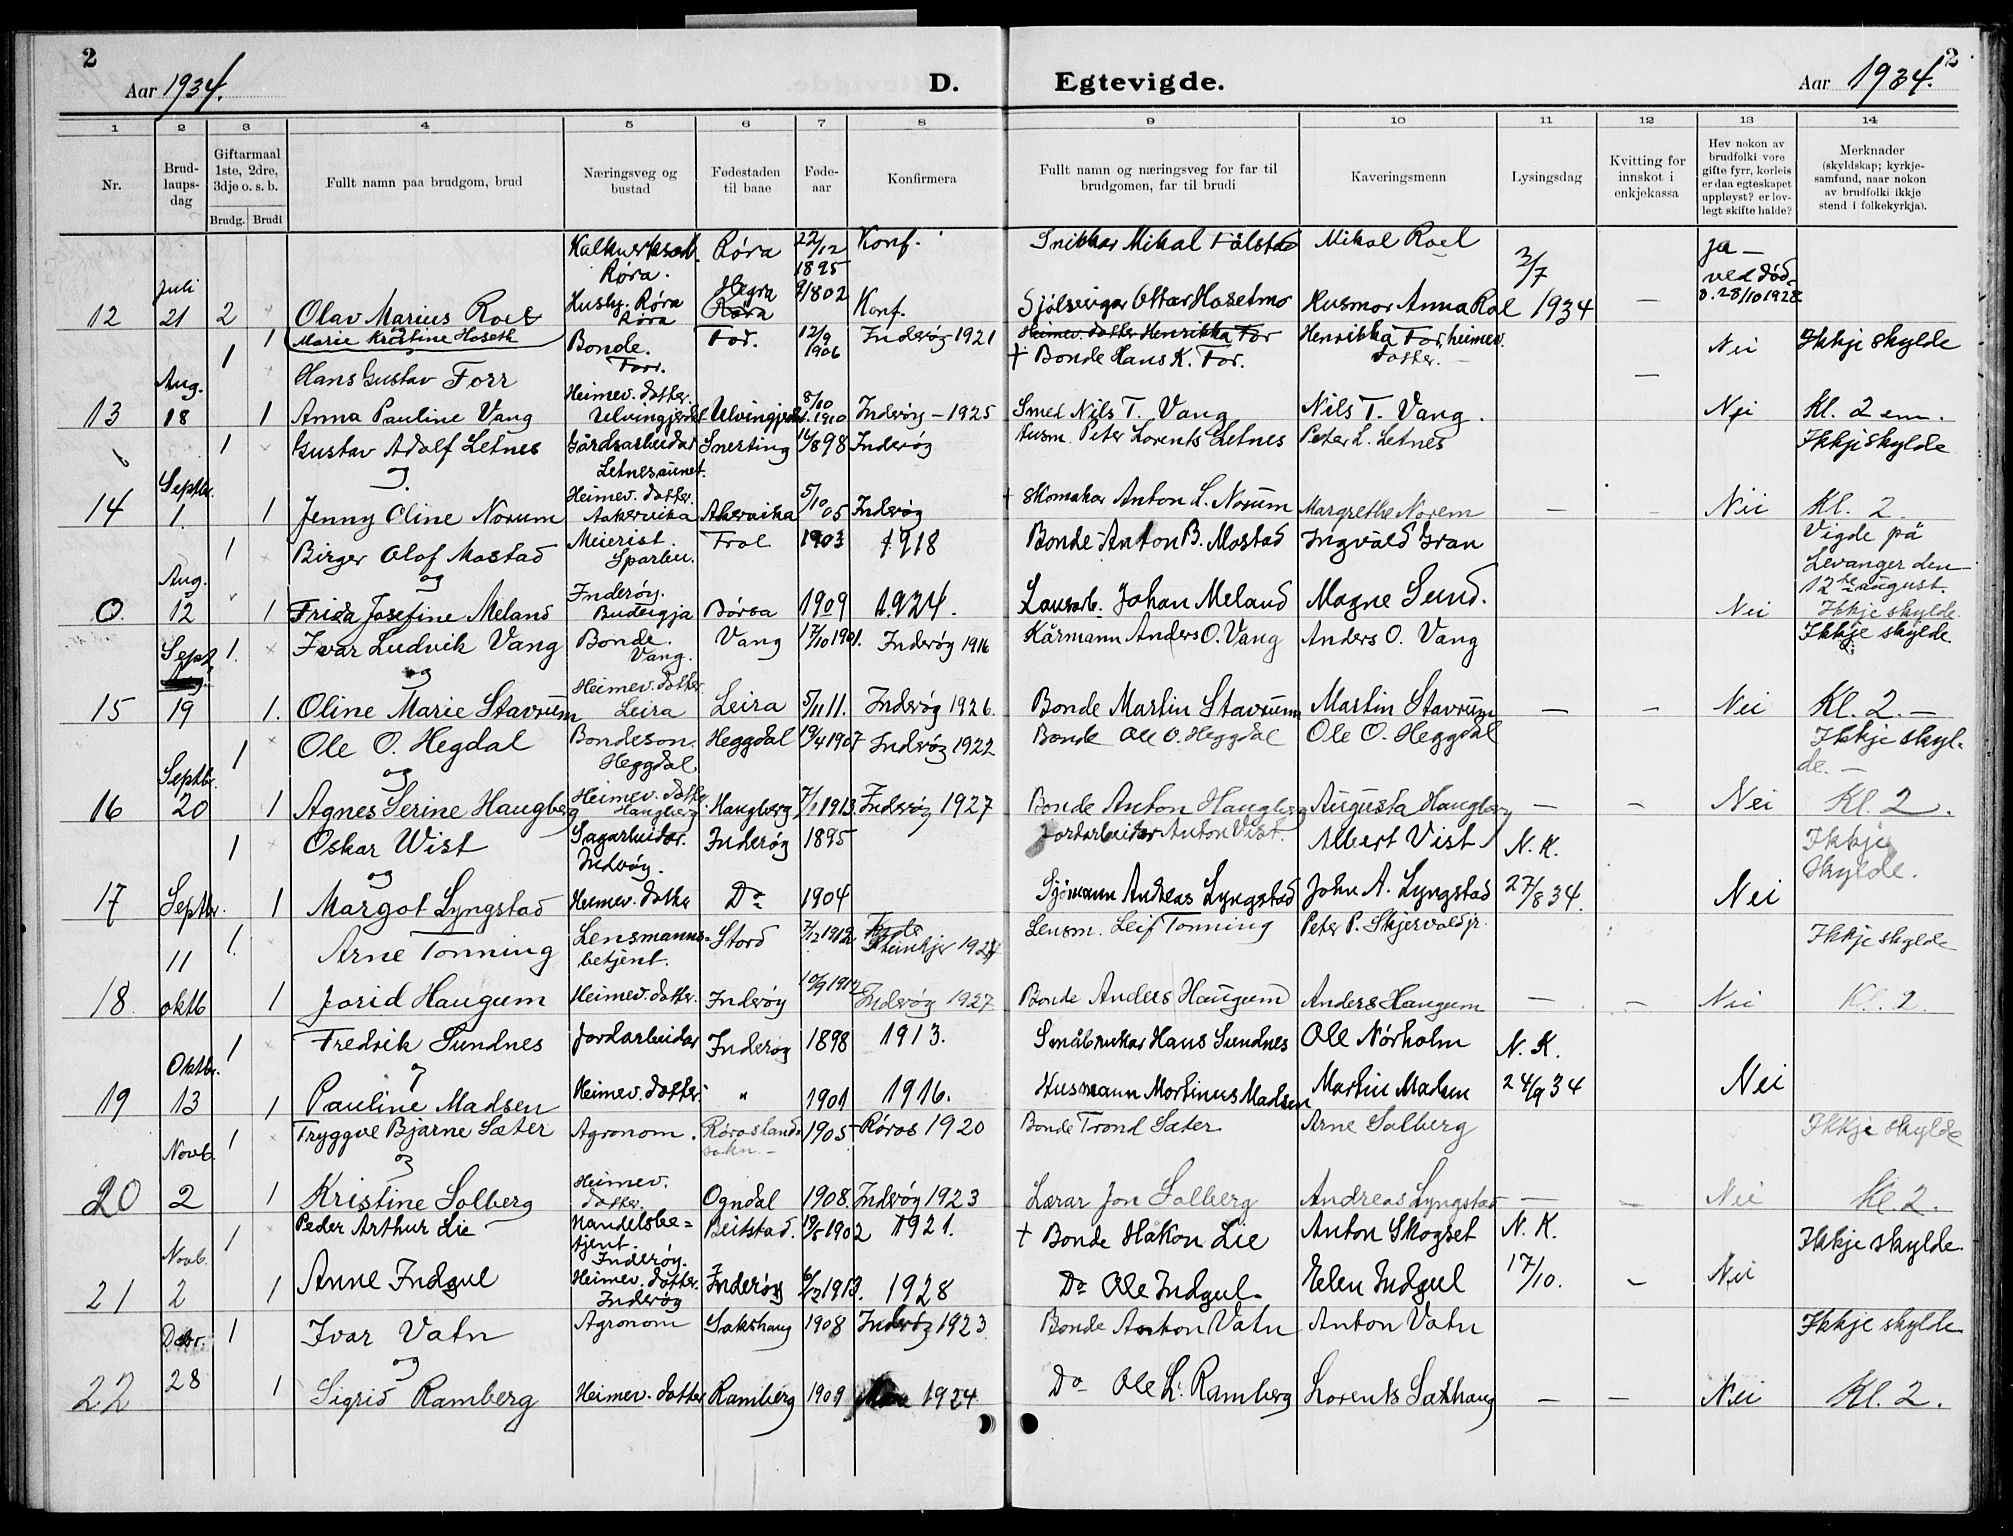 2
Aar 1934.
D. Egtevigde.
Aar 1934.
2
1 2 3 4 5 6 7 8 9 10 11 12 13 14
Nr.
Brudlaups-dag
Giftarmaal 1ste, 2dre, 3dje o. s. b.
Brudg. Brudi
Fullt namn paa brudgom, brud
Næringsveg og bustad
Fødestaden til baae
Føde-aar
Konfirmera
Fullt namn og næringsveg for far til brudgomen, far til brudi
Kaveringsmenn
Lysingsdag
Kvitting for innskot i enkjekassa
Hev nokon av brudfolki vore gifte fyrr, korleis er daa egteskapet uppløyst? er lovlegt skifte halde?
Merknader (skyldskap; kyrkjesamfund, naar nokon av brudfolki ikkje stend i folkekyrkja).
Røra. Røra 22/12 1895 Konf. Snikkar Mikal Følstad Mikal Roel 2/7 1934 Ja – ved død d. 28/10 1928
12 Juli 21 2 Olav Marius Roel
1 Marie Kristine Hoseth Husby. Røra Røra Hegra Røra 9/1802 Konf. Ottar Hosetmo Husmor Anna Roel
1 Hans Gustav Forr Bonde. Forr. For. 12/9 1906 Inderøy 1921 Heimev. dotter Henrikka For + Bonde Hans K. For. Henrikka For, heimev. dotter. – Nei Ikkje skylde
13 Aug. 18 1 Anna Pauline Vang Heimev. dotter. Ulvingjerdet Ulvingjerdet 5/10 1910 Inderøy – 1925 Smed Nils T. Vang Nils T. Vang. Nei Kl. 2 em.
1 Gustav Adolf Letnes Gårdsarbeidar Letnesaunet. Snerting 16/8 98 Inderøy Husm. Peter Lorents Letnes Peter L. Letnes Ikkje skylde
14 Septbr. 1. 1 Jenny Oline Norum Heimev. dotter. Aakervika Akervika 5/10 05 Inderøy + Skomakar Anton L. Norum Margrethe Norem – – Nei Kl. 2.
1 Birger Olof Mostad Meierist. Sparbu. Frol 1903 1918 Bonde Anton B. Mostad Ingvald Gran Vigde på Levanger den 12te august.
og
0. Aug. 12 1 Frida Josefine Meland Inderøy. Budeigja Børsa 1909 1924. Lausarb. Johan Meland Magne Sund. Nei Ikkje skylde
1. Ivar Ludvik Vang Bonde. Vang. Vang 17/10 1901. Inderøy 1916 Kårmann Anders O. Vang Anders O. Vang Ikkje skylde
og
15 Sept. 19 1. Oline Marie Stavrum Heimev. dotter Leira Leira 5/11 11. Inderøy 1926. Bonde Martin Stavrum Martin Stavrum – – Nei Kl. 2. –
1 Ole O. Hegdal Bondeson. Heggdal. Heggdal 19/4 1907 Inderøy 1922 Bonde Ole O. Heggdal Ole O. Heggdal Ikkje skylde. –
og
16 Septbr. 20 1 Agnes Serine Haugberg Heimev. dotter Haugberg Haugberg 7/1 1913 Inderøy 1927 Bonde Anton Haugberg Augusta Haugberg – – Nei Kl. 2.
1 Oskar Wist Sagarbeidar. Inderøy. Inderøy 1895 Jordarbeidar Anton Vist. Albert Vist N. K. Ikkje skylde.
og
17 Septbr. 1 Margot Lyngstad Heimev. dotter Do 1904 Sjömann Andreas Lyngstad John A. Lyngstad 27/8 34. Nei
1. Arne Tonning Lensmanns-betjent. Stord 7/12 1912 Steinkjer 1927 Lensm. Leif Tonning Peter P. Skjervold jr. Ikkje skylde
18. 11 oktb 1 Jorid Haugum Heimev. dotter. Inderøy 10/9 1912 Inderøy 1927 Bonde Anders Haugum Anders Haugum – – Nei Kl. 2.
1 Fredrik Sundnes Jordarbeidar Inderøy 1898 1913. Småbrukar Hans Sundnes Ole Nørholm N. K.
19 Oktbr. 13 1 Pauline Madsen Heimev. dotter " 1901 1916. Husmann Mortinus Madsen Martin Madsen 24/9 34 Nei
1 Tryggve Bjarne Sæter Agronom. Røros landsokn. – 1905 Røros 1920 Bonde Trond Sæter Arne Solberg Ikkje skylde
og
20 Novb. 2 1 Kristine Solberg Heimev. dotter. Ogndal 1908. Inderøy 1923 Lærar Jon Solberg Andreas Lyngstad – – Nei Kl. 2.
1 Peder Arthur Lie Handelsbetjent. Inderøy. Beitstad. 19/5 1902 1921. + Bonde Håkon Lie Anton Skogset N. K. Ikkje skylde.
21 Novb. 2 1 Anne Indgul Heimev. dotter. Inderøy Inderøy 6/12 1913. 1928 Do Ole Indgul. Elen Indgul 17/10. – Nei
1 Ivar Vatn Agronom Sakshaug 1908 Inderøy 1923 Bonde Anton Vatn Anton Vatn Ikkje skylde
og
22 Desbr. 28 1 Sigrid Ramberg Heimev. dotter Ramberg 1909 1924 Do Ole L. Ramberg Lorents Sakshaug – – Nei Kl. 2.